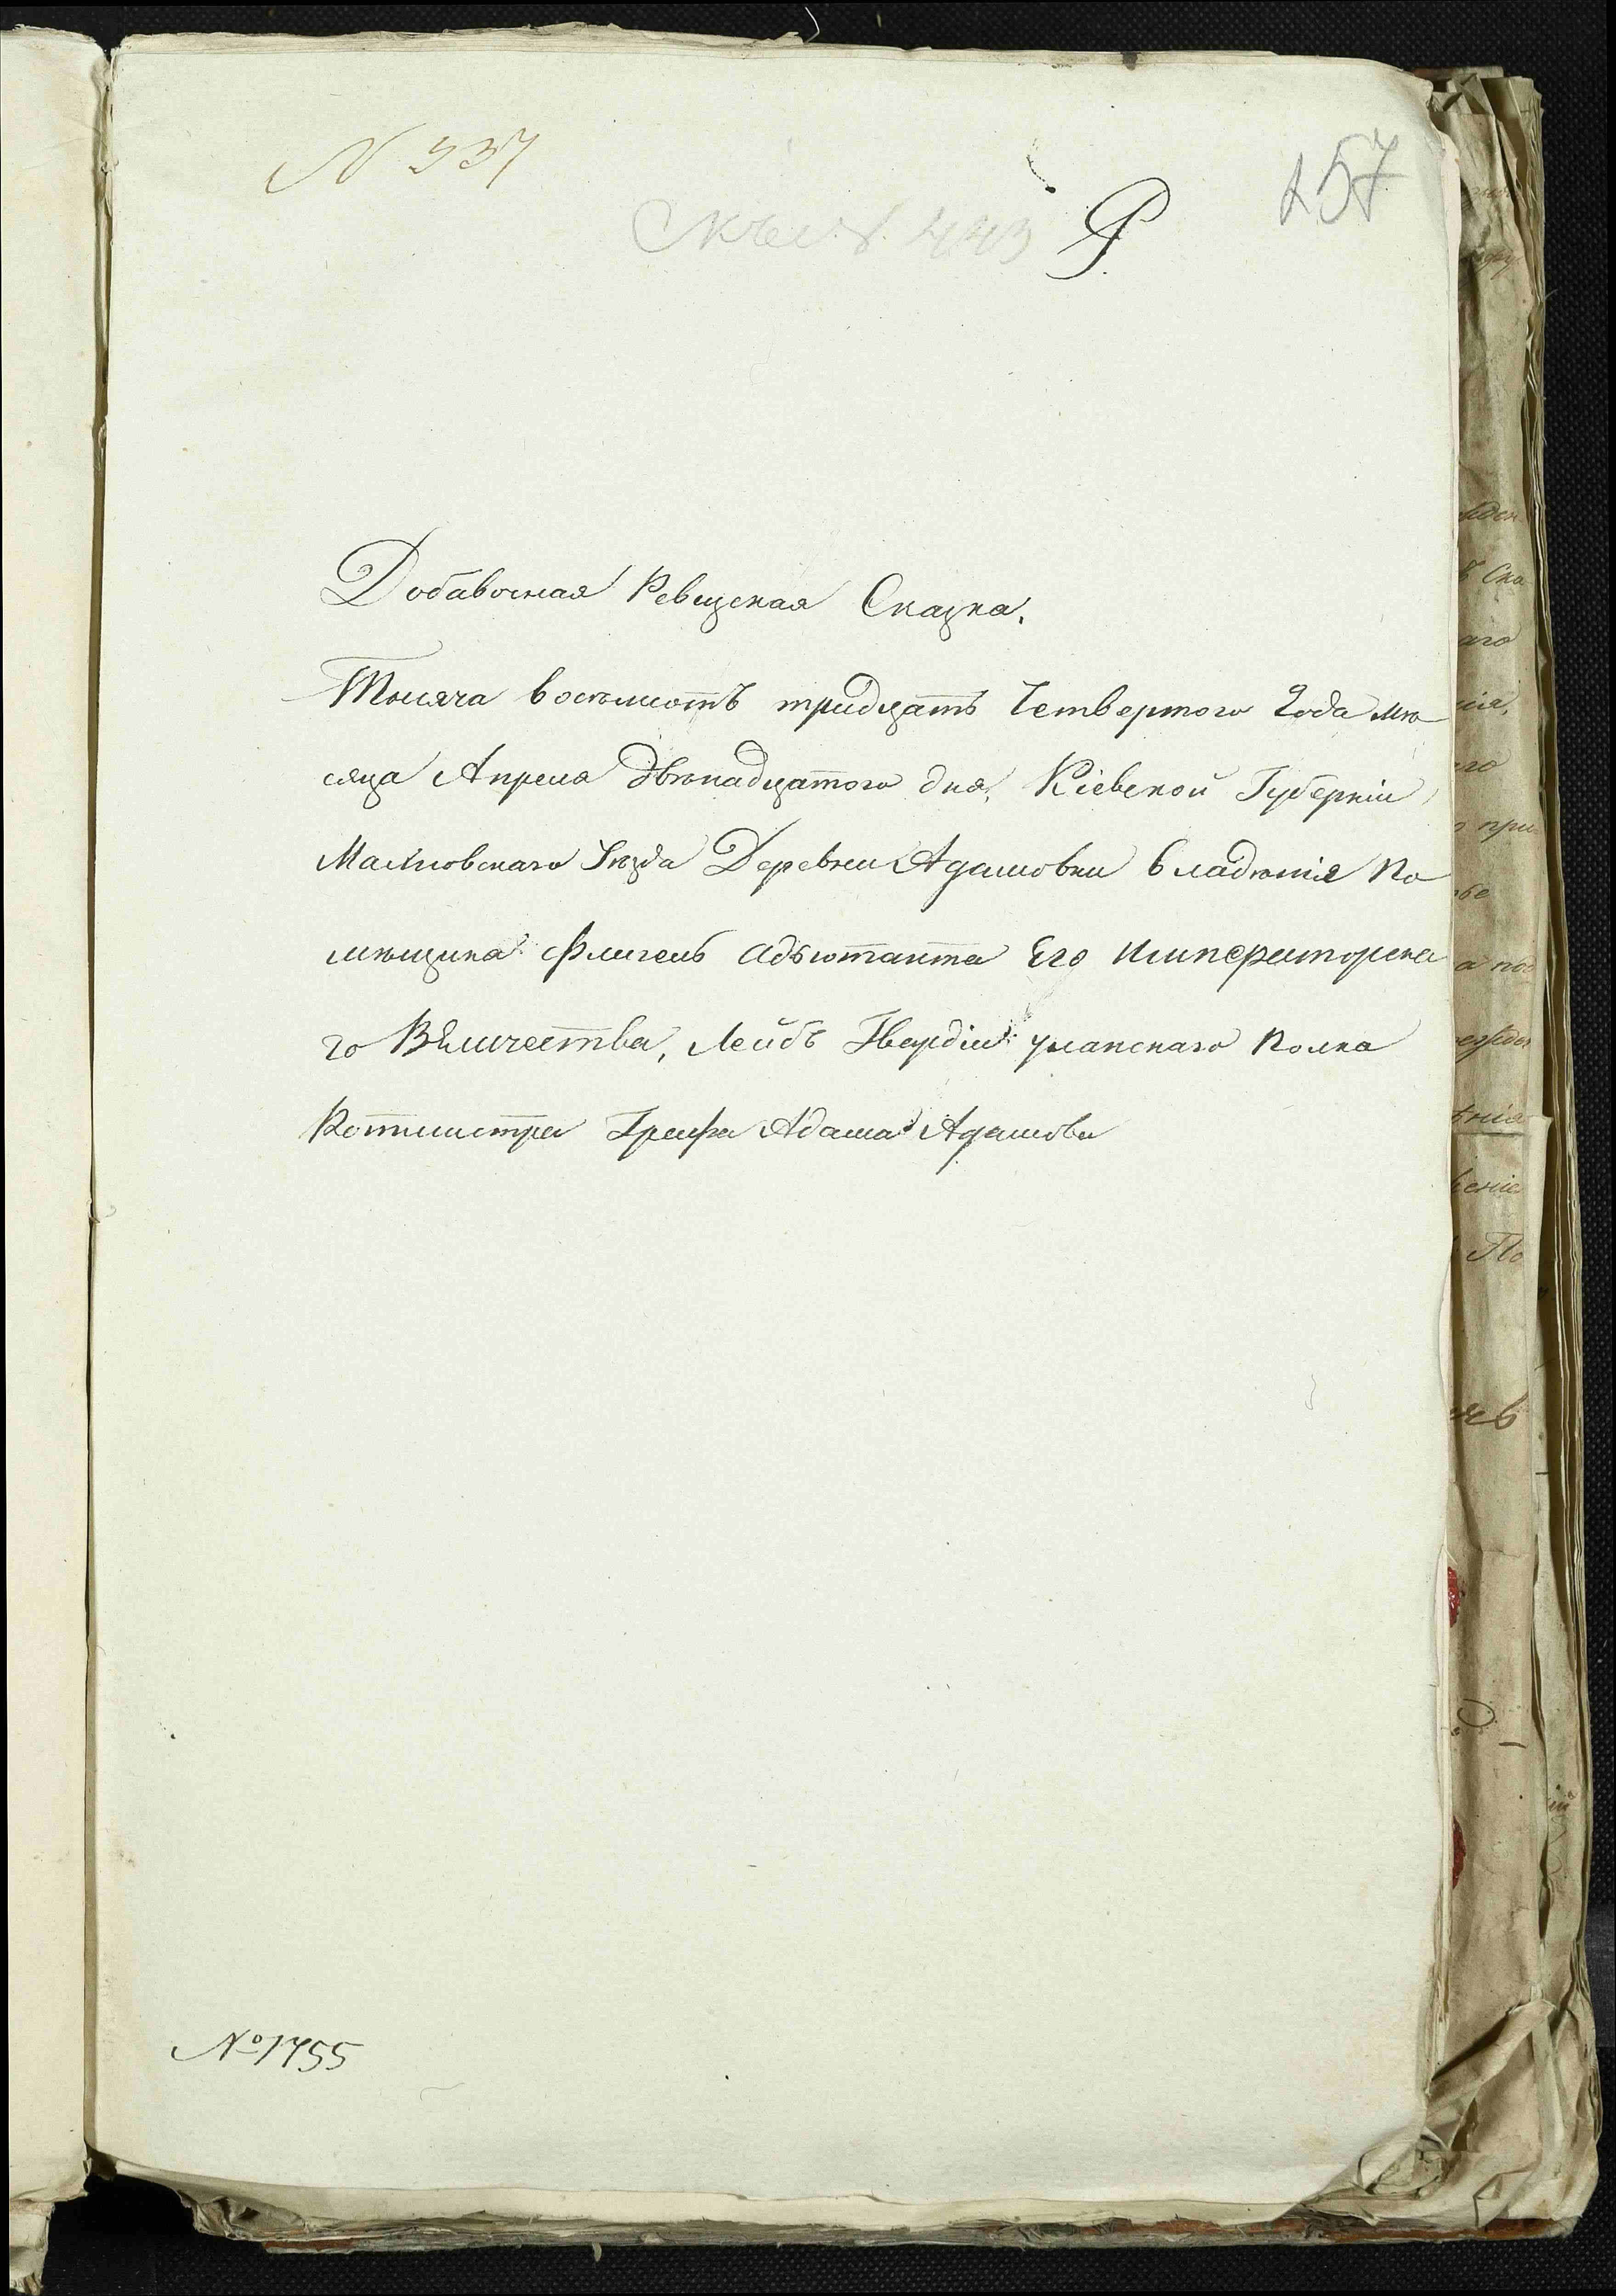 N 937
443
157
Добавочная Ревизская Сказка.
Тысяча восемьсотъ тридцать Четвертого Года мѣ
сяца Апреля двѣнадцатого дня, Кіевской Губерніи
Махновскаго Уѣзда Деревни Адамовки владѣнія По
мѣщика Флигель Адъютанта Его Императорска
го Величества, Лейбъ Гвардіи уланскаго Полка
Ротмистра Графа Адама Адамова
№ 1755